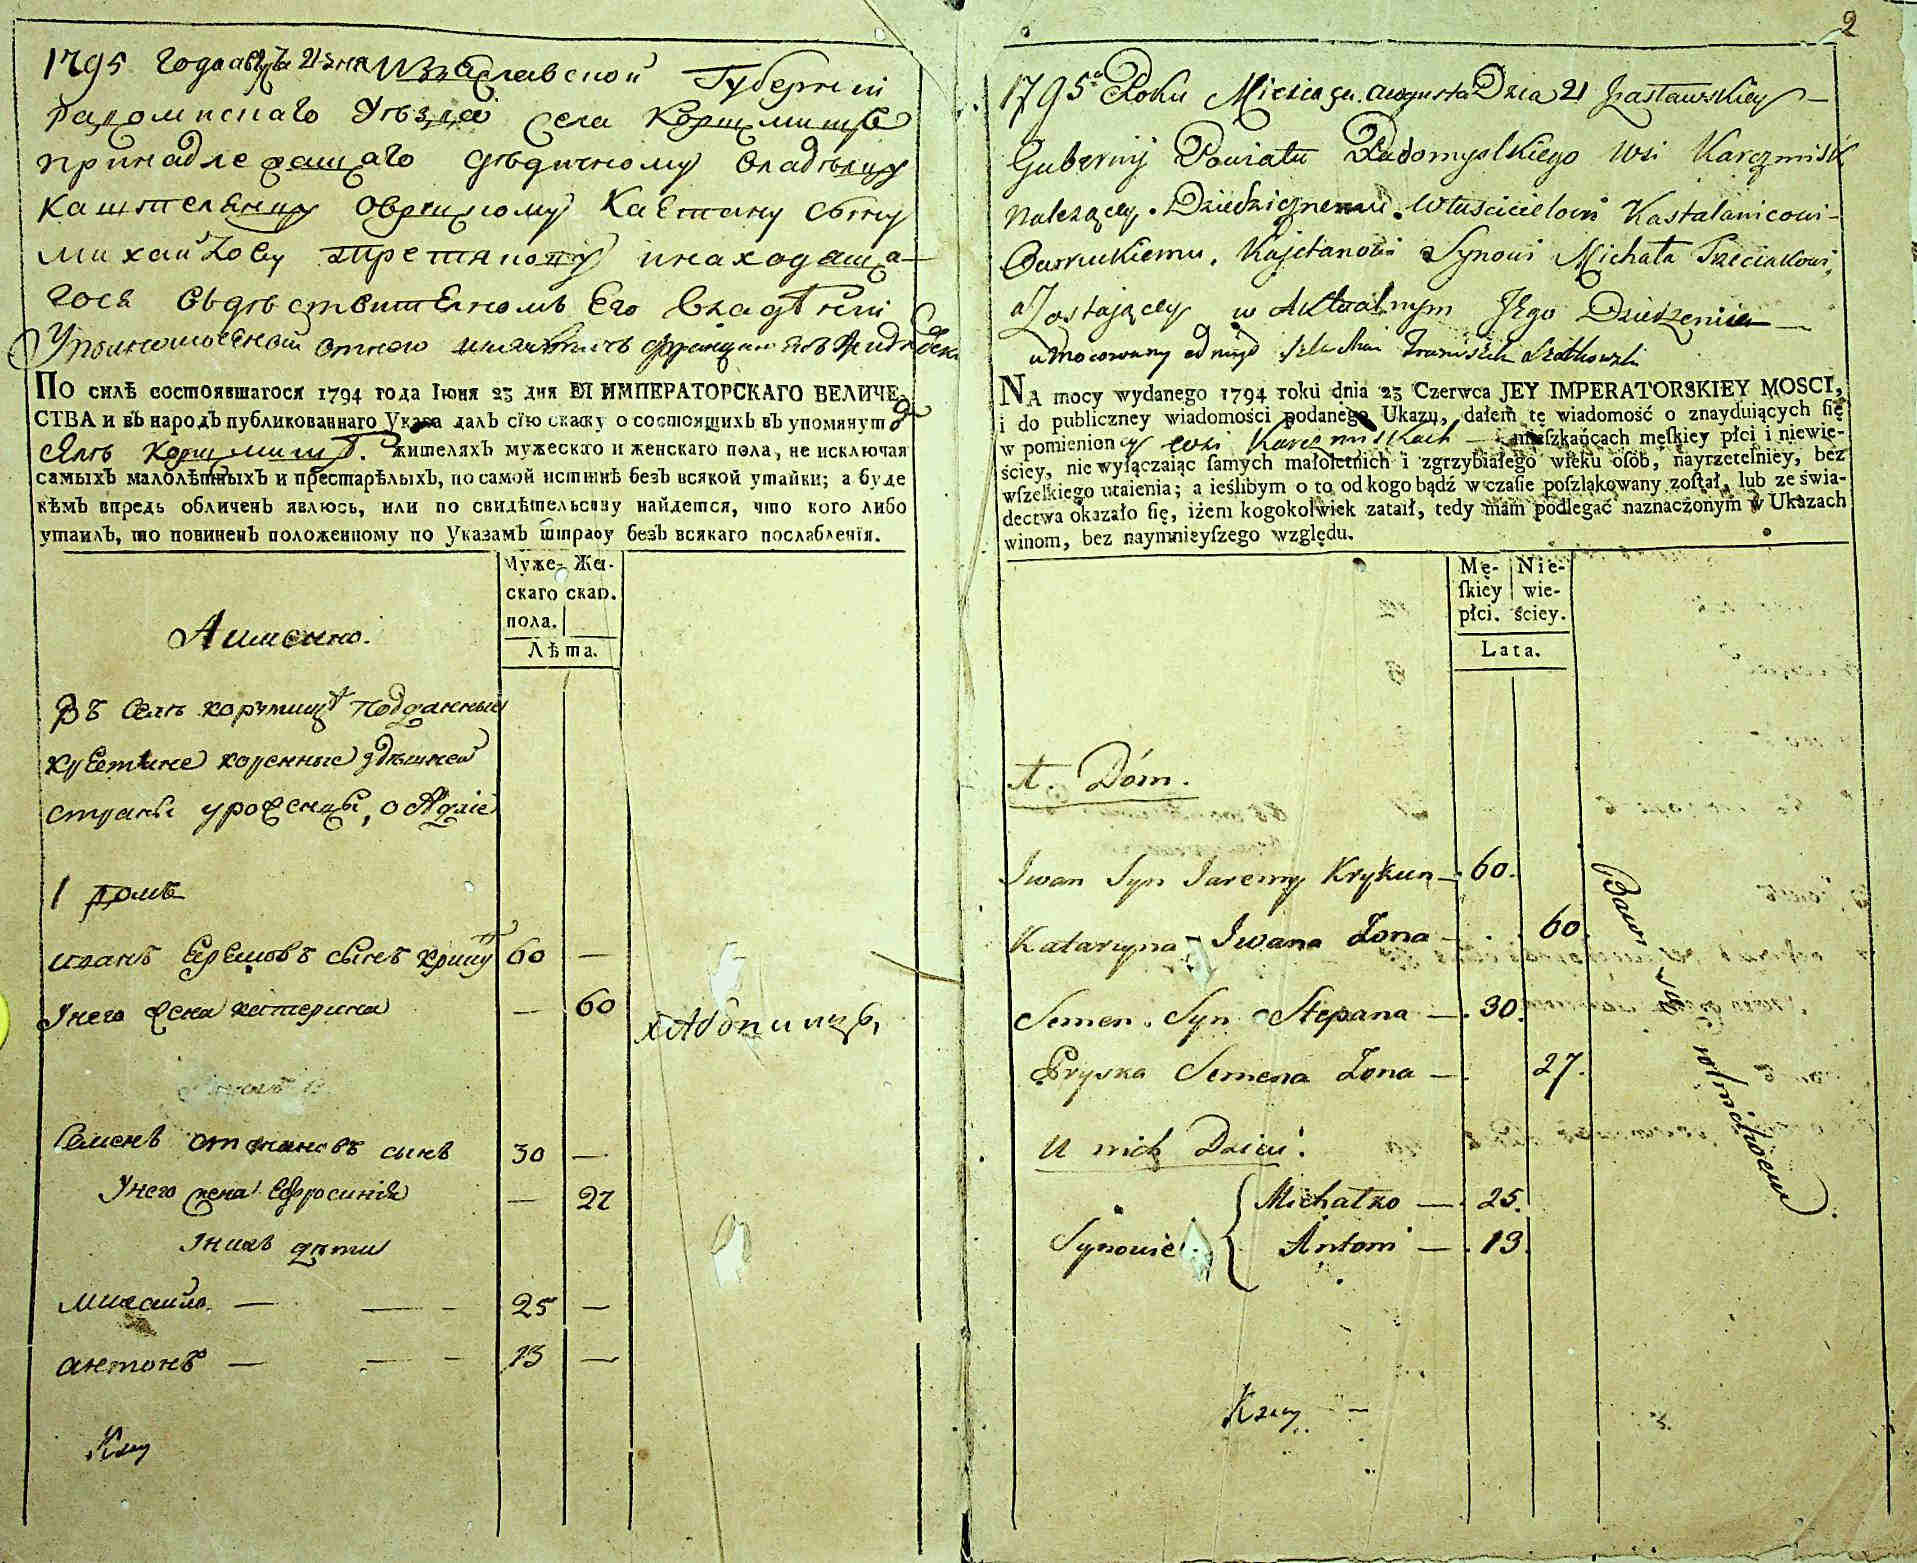 1795 года августа 21 дня Изяславской Губерніи
Радомыскаго Уѣзда Села
принадлежащаго дѣдичному владѣльцу
Каштеляницу Овруцкому Каетану сыну
Михайлову Третяку и находяща-
гося въ дѣствителномъ Его владѣніи
отнего шляхтичъ
ПО силѣ состоявшагося 1794 года Іюня 23 дня ЕЯ ИМПЕРАТОРСКАГО ВЕЛИЧЕ-
СТВА и въ народъ публикованнаго Указа далъ сію скаску о состоящихъ въ упомянут
Селѣ жителяхъ мужескаго и женскаго пола, не исключая
самыхъ малолѣтныхъ и престарѣлыхъ, по самой истиннѣ безъ всякой утайки; а буде
кѣмъ впредь обличенъ явлюсь, или по свидѣтельству найдется, что кого либо
утаилъ, то повиненъ положенному по Указамъ штрафу безъ всякаго послабленія.
Муже- Же-
скаго скаго.
пола.
Лѣта.
А имянно.
Въ Селѣ подданные
крестяне коренные здѣшней
страны уроженцы,
1 домъ
иванъ Еремовъ сынъ 60 —
Унего жена катерина — 60
хлѣбопашцъ,
Семенъ степановъ сынъ 30 —
Унего жена Ефросинія — 27
Унихъ дѣти
михайло — — — 25 —
антонъ — — — 13 —
2
1795 Roku Miesiąca augusta Dnia 21 Zasławskiey —
Gubernij Powiatu Radomyslskiego Wsi Karczmisk
Nalezącey. Dziedzicznemu Włascicielowi Kasztalanicowi
Owruckiemu, Kajetanowi Synowi Michała Trzeciakowi,
a Zostającey w Aktualnym Jego Dziedzeniu —
umocowany od niego Szlachcic Franciszek
NA mocy wydanego 1794 roku dnia 23 Czerwca JEY IMPERATORSKIEY MOSCI,
i do publiczney wiadomości podanego Ukazu, dałem tę wiadomość o znayduiących ſię
w pomienioney wsi Karczmiskach — mieſzkańcach męſkiey płci i niewie-
ściey, nie wyłączaiąc ſamych małoletnich i zgrzybiałego wieku oſób, nayrzetelniey, bez
wſzelkiego utaienia; a ieślibym o to od kogo bądź w czaſie poſzlakowany zoſtał, lub ze świa-
dectwa okazało ſię, iżem kogokolwiek zataił, tedy mam podlegać naznaczonym w Ukazach
winom, bez naymnieyſzego względu.
Mę- Nie-
ſkiey wie-
płci. ściey.
Lata.
1. Dóm.
Iwan Syn Jaremy Krykun — 60.
Katarzyna Iwana Żona — 60.
Semen Syn Stepana — 30.
Pryska Semena Żona — 27.
U nich Dzieci:
Synowie Michałko — 25.
Antoni — 13.